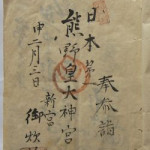 奉参詣
日本第一
熊野皇大神宮
新宮
申二月三日
御炊